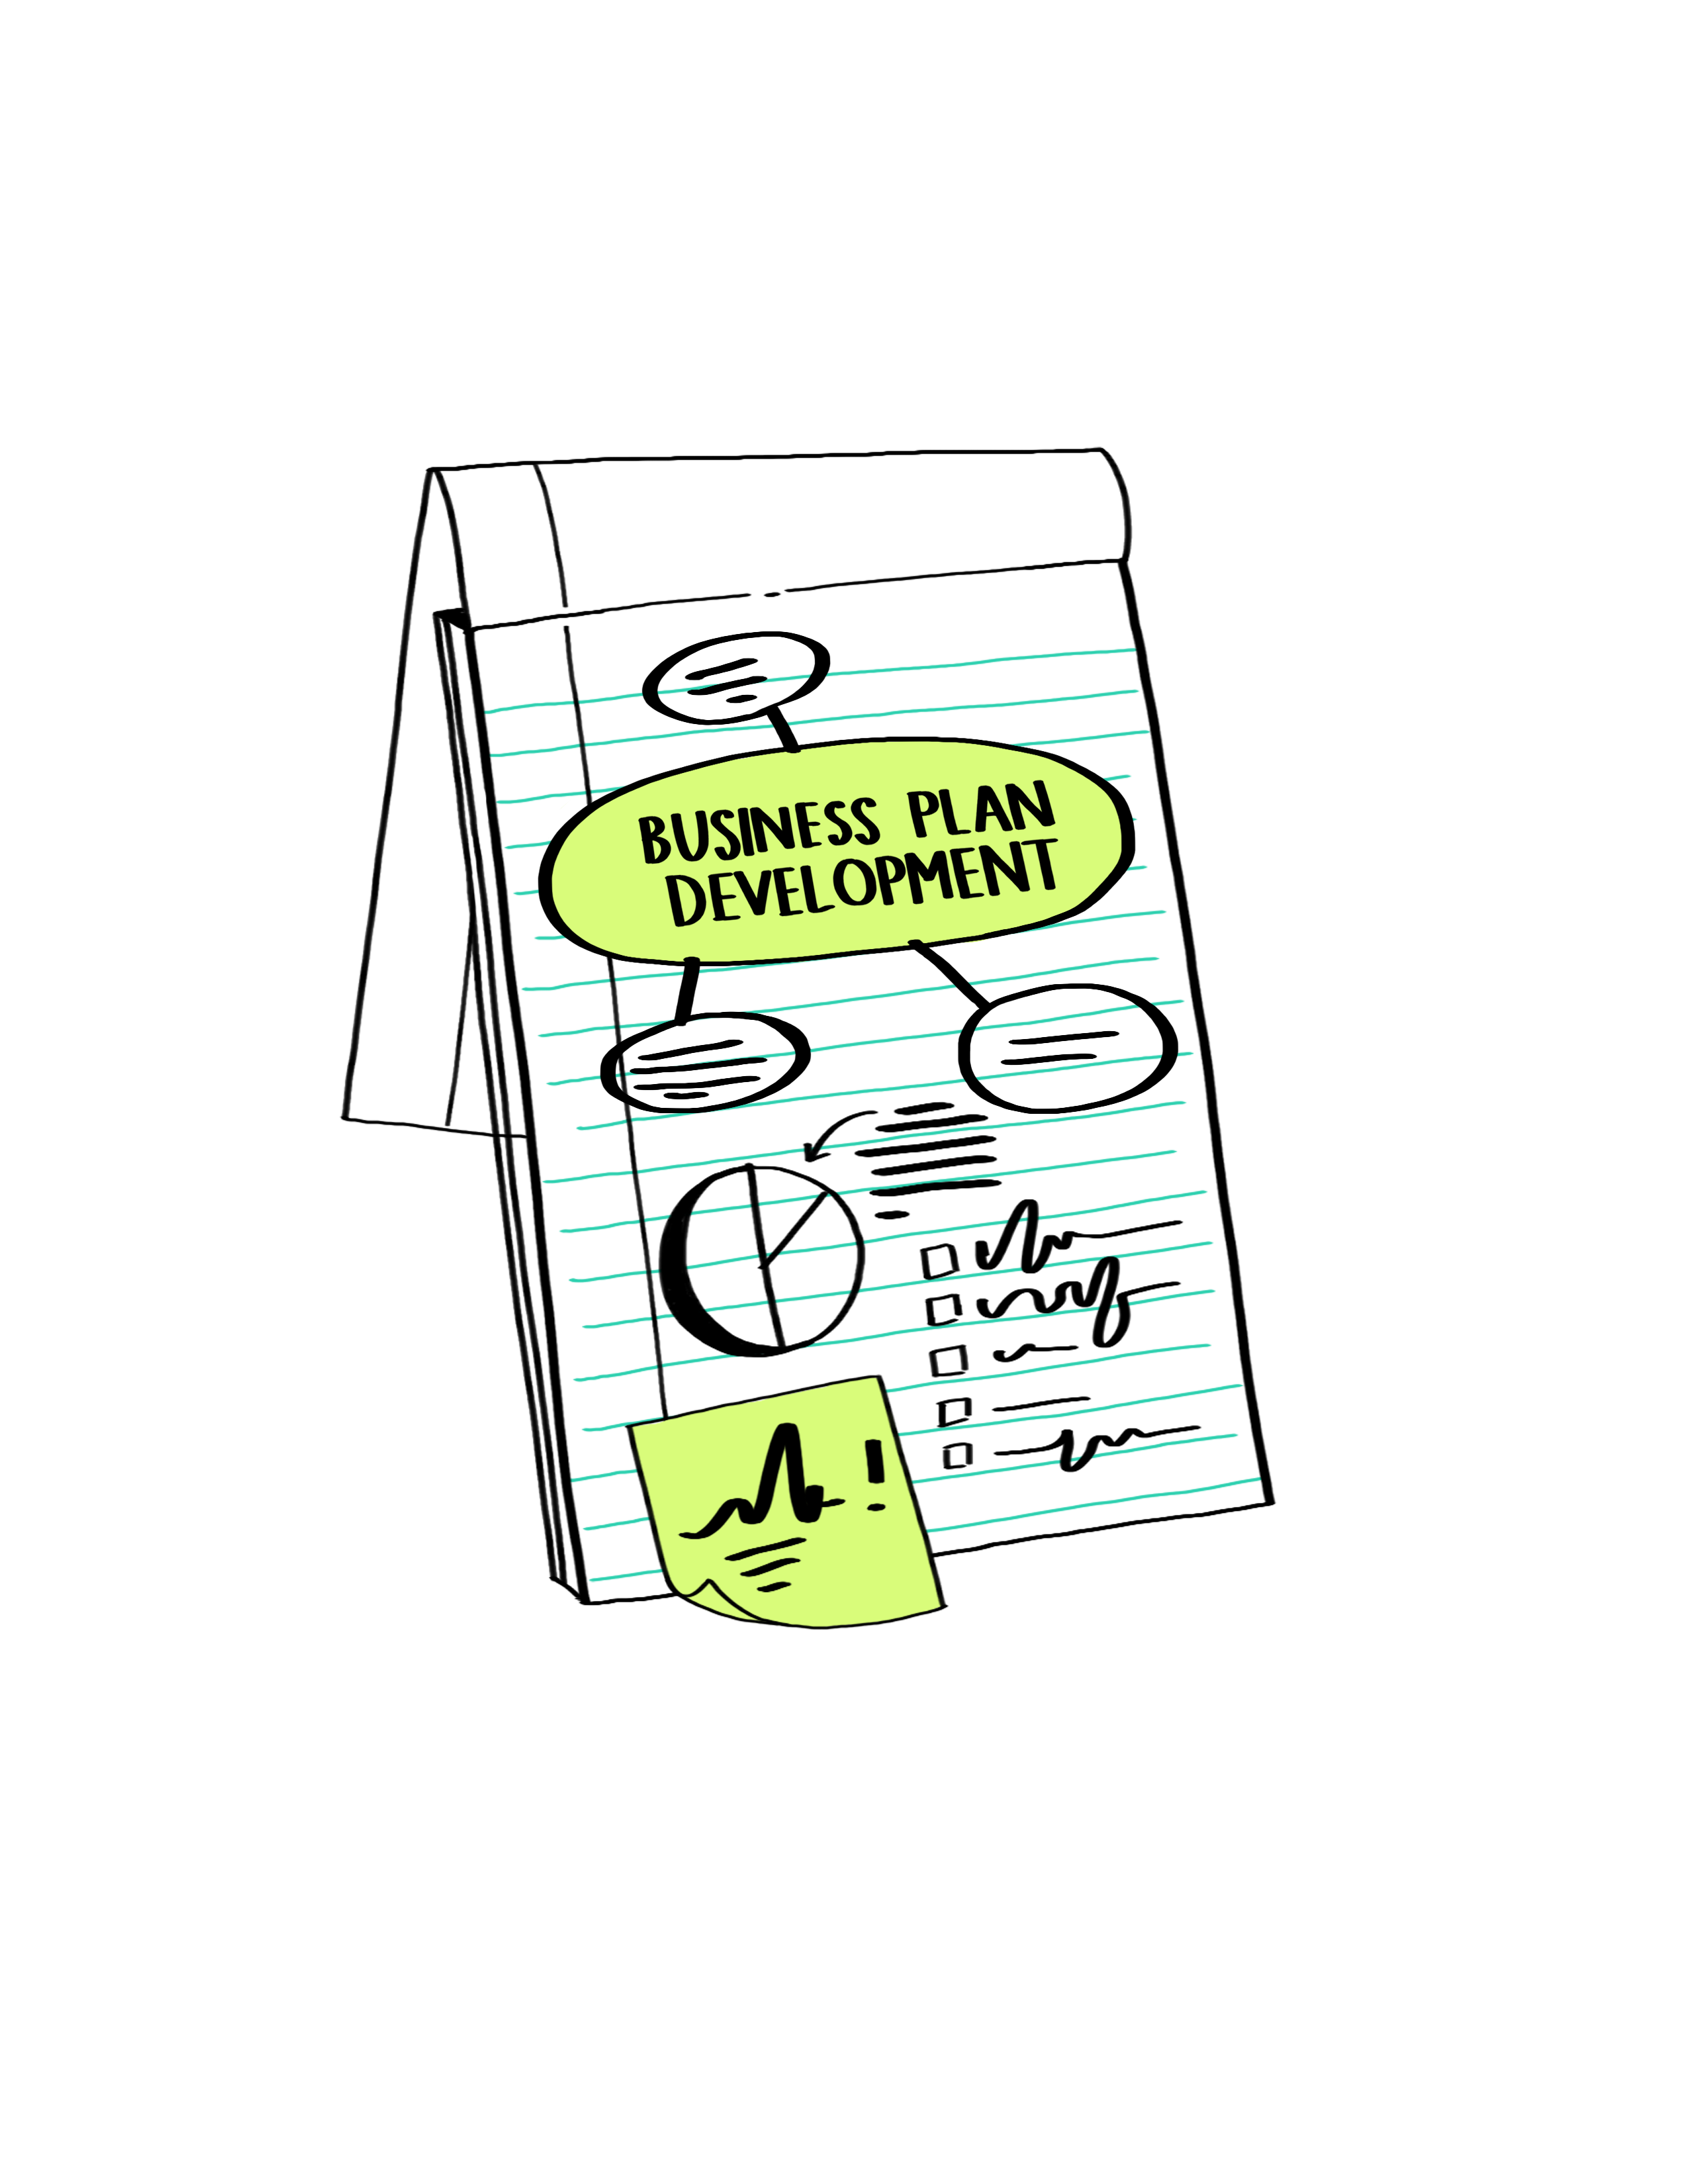 BUSINESS PLAN
DEVELOPMENT
!